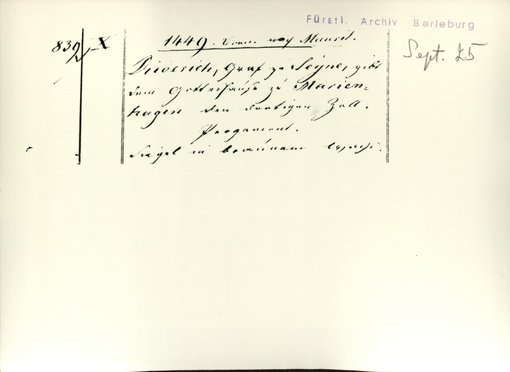 Fürstl. Archiv Berleburg
Sept. 25
839/2 X
1449. Donn. nach Maurit.
Diederich, Graf zu Seyne, gibt
dem Gotteshause zu Marien-
hagen den dortigen Zoll.
Pergament.
Siegel in braunem